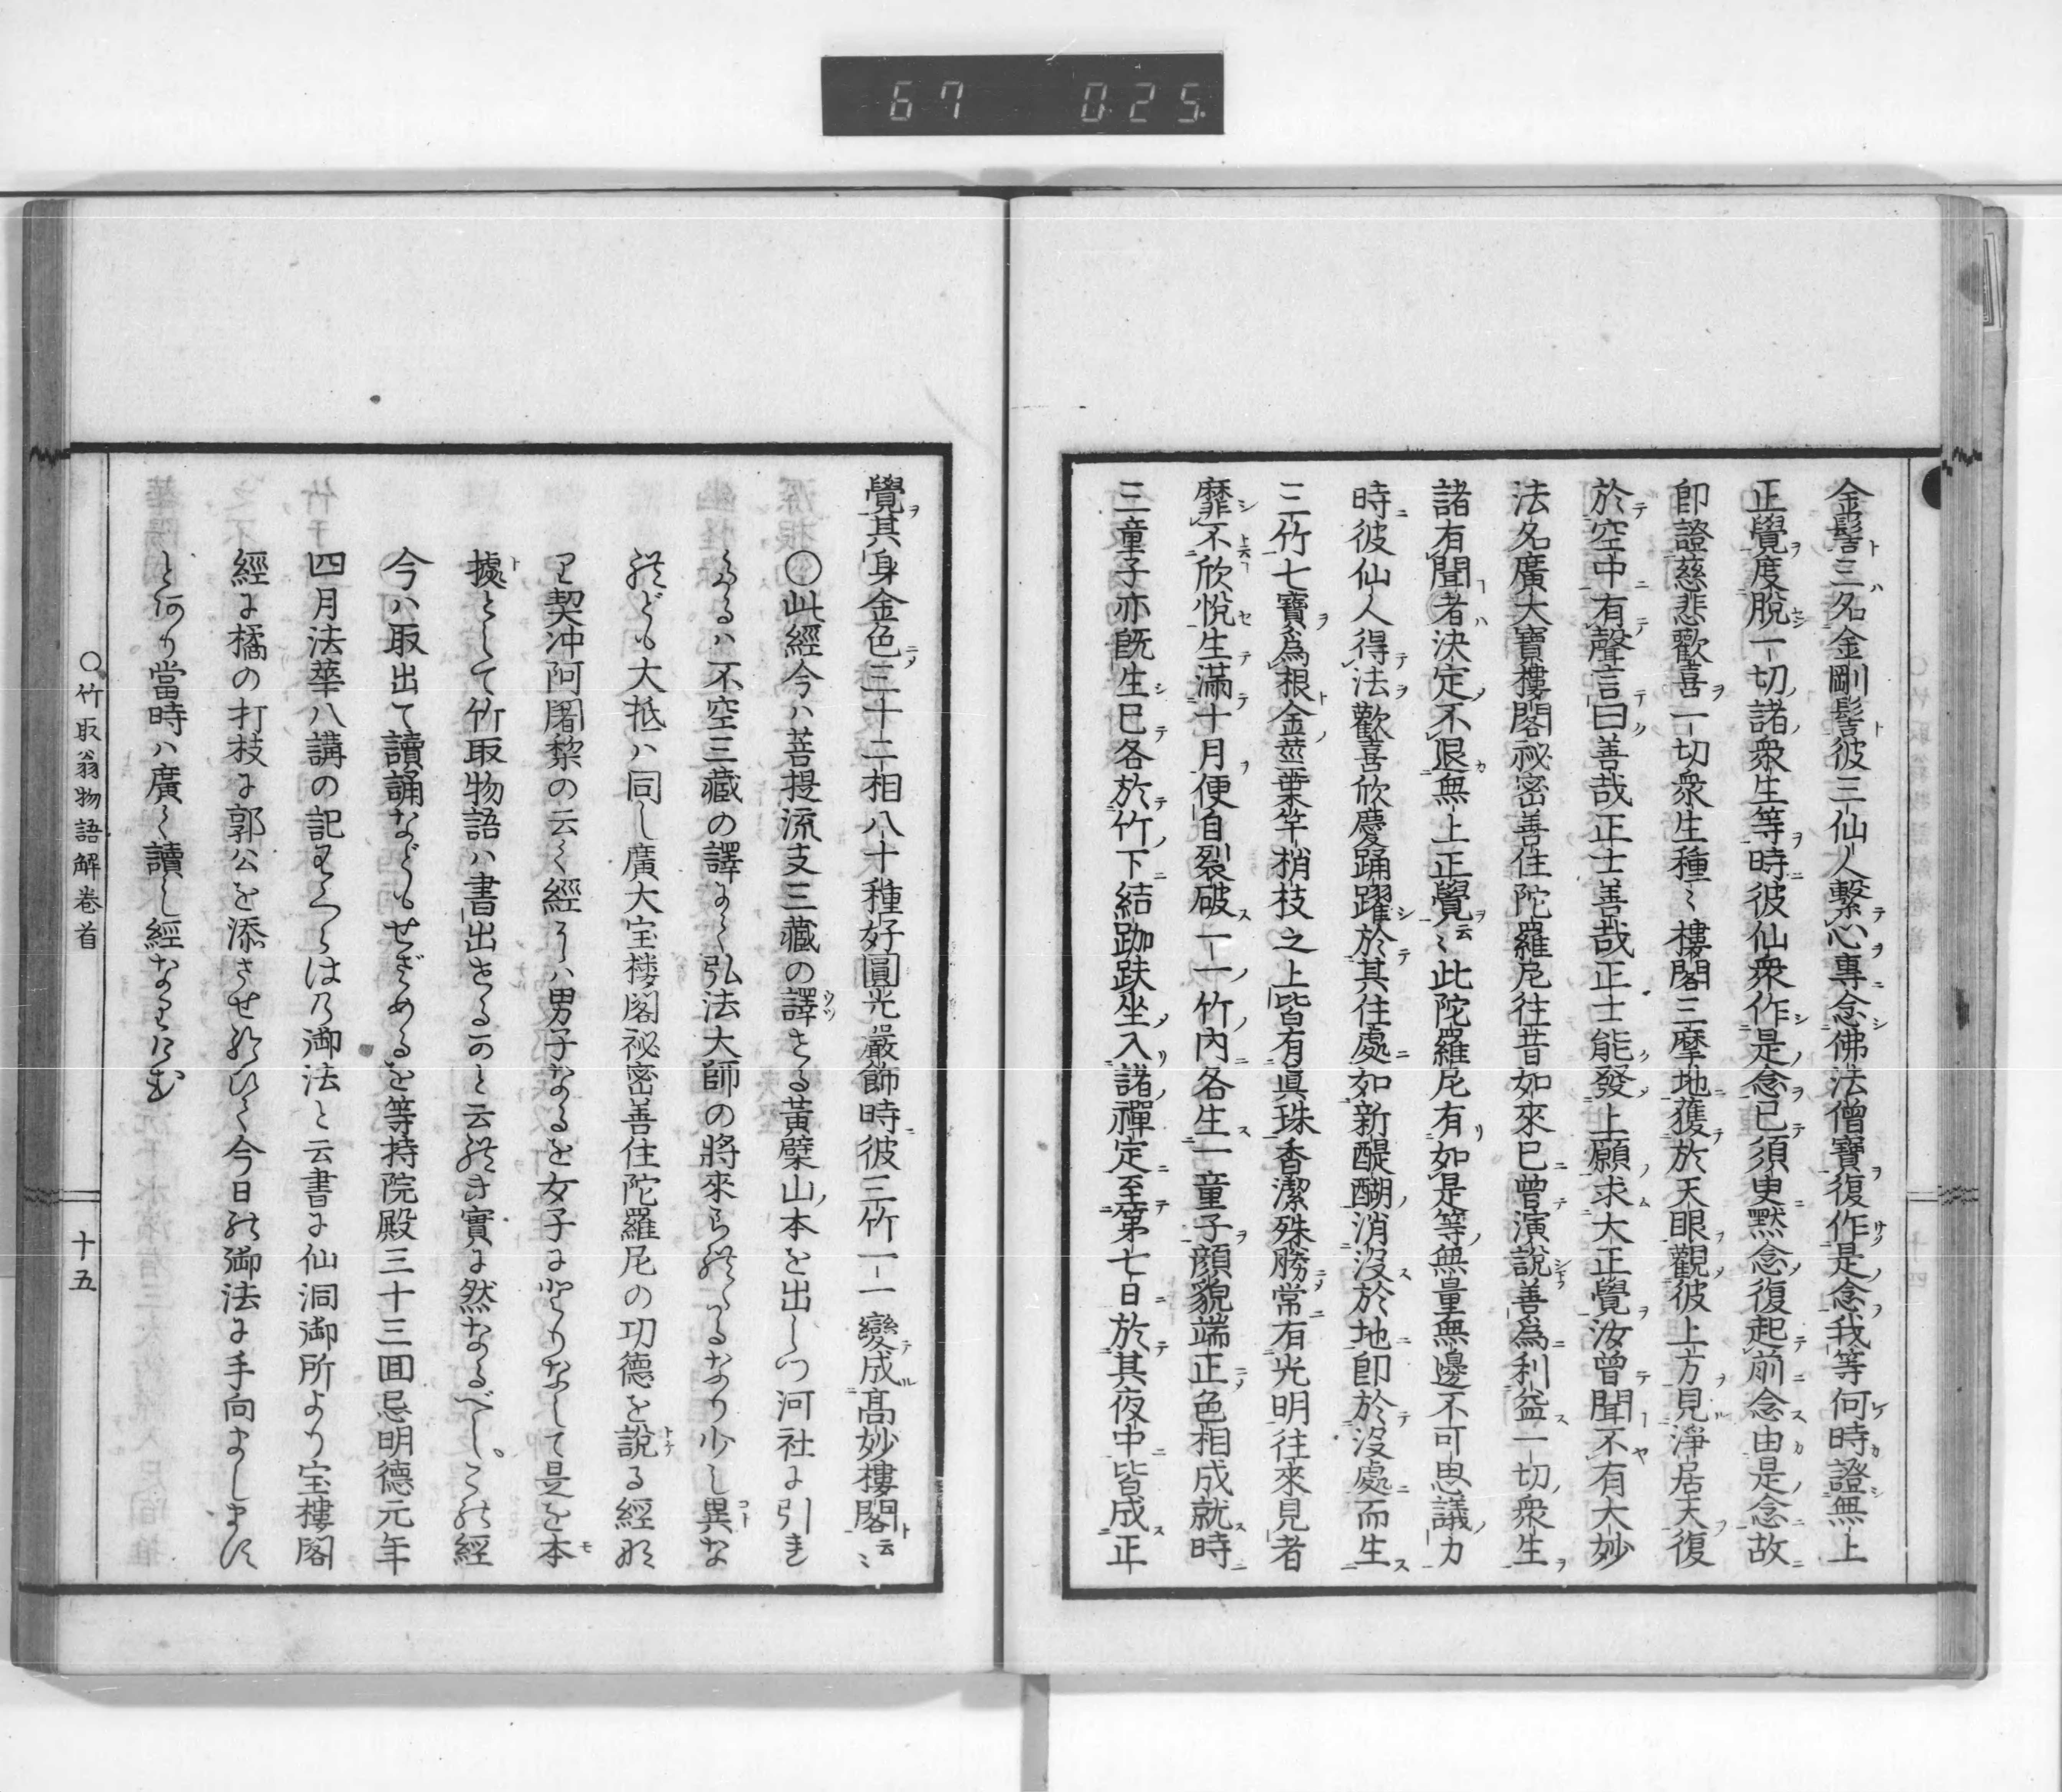 67 025
金髻三名金剛髻彼三仙人繫心專念佛法僧寶復作是念我等何時證無上
正覺度脫一切諸衆生等時彼仙衆作是念已須臾默念復起前念由是念故
卽證慈悲歡喜一切衆生種〻樓閣三摩地獲於天眼觀彼上方見淨居天復
於空中有聲言曰善哉正士善哉正士能發上願求大正覺汝曾聞不有大妙
法名廣大寶樓閣祕密善住陀羅尼往昔如來已曾演說善爲利益一切衆生
諸有聞者決定不退無上正覺云〻此陀羅尼有如是等無量無邊不可思議力
時彼仙人得法歡喜欣慶踊躍於其住處如新醍醐消沒於地卽於沒處而生
三竹七寶爲根金莖葉竿梢枝之上皆有眞珠香潔殊勝常有光明往來見者
靡不欣悅生滿十月便自裂破一一竹內各生一童子顏貌端正色相成就時
三童子亦旣生已各於竹下結跏趺坐入諸禪定至第七日於其夜中皆成正
覺其身金色三十二相八十種好圓光嚴飾時彼三竹一一變成高妙樓閣云〻
〇此經今ハ菩提流支三藏の譯さる黃檗山本を出しつ河社に引れ
たるハ不空三藏の譯にて弘法大師の將來られたるなり少し異な
れども大抵ハ同し廣大宝楼閣祕密善住陀羅尼の功德を說る經なれ
り契沖阿闍黎の云く經にハ男子なるを女子にとりなして是を本
據として竹取物語ハ書出さるかと云れき實に然なるべし。この經
今ハ取出て讀誦などもせざめるを等持院殿三十三囘忌明德元年
四月法華八講の記にはの御法と云書に仙洞御所より宝樓閣
經に橘の打枝に郭公を添させ給ひて今日の御法に手向まします
とあり當時ハ廣く讀し經なりけむ
〇竹取翁物語解卷首
十五